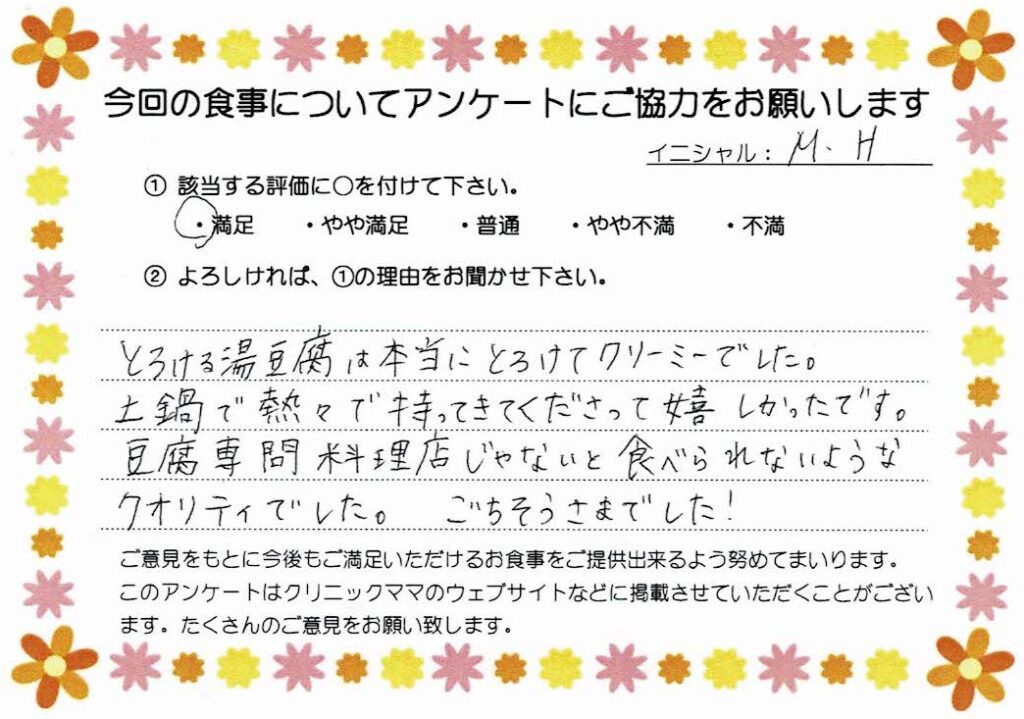 今回の食事についてアンケートにご協力をお願いします
イニシャル： M. H
① 該当する評価に○を付けて下さい。
・満足 ・やや満足 ・普通 ・やや不満 ・不満
② よろしければ、①の理由をお聞かせ下さい。
とろける湯豆腐は本当にとろけてクリーミーでした。
土鍋で熱々で持ってきてくださって嬉しかったです。
豆腐専問料理店じゃないと食べられないような
クオリティでした。 ごちそうさまでした！
ご意見をもとに今後もご満足いただけるお食事をご提供出来るよう努めてまいります。
このアンケートはクリニックママのウェブサイトなどに掲載させていただくことがござい
ます。たくさんのご意見をお願い致します。